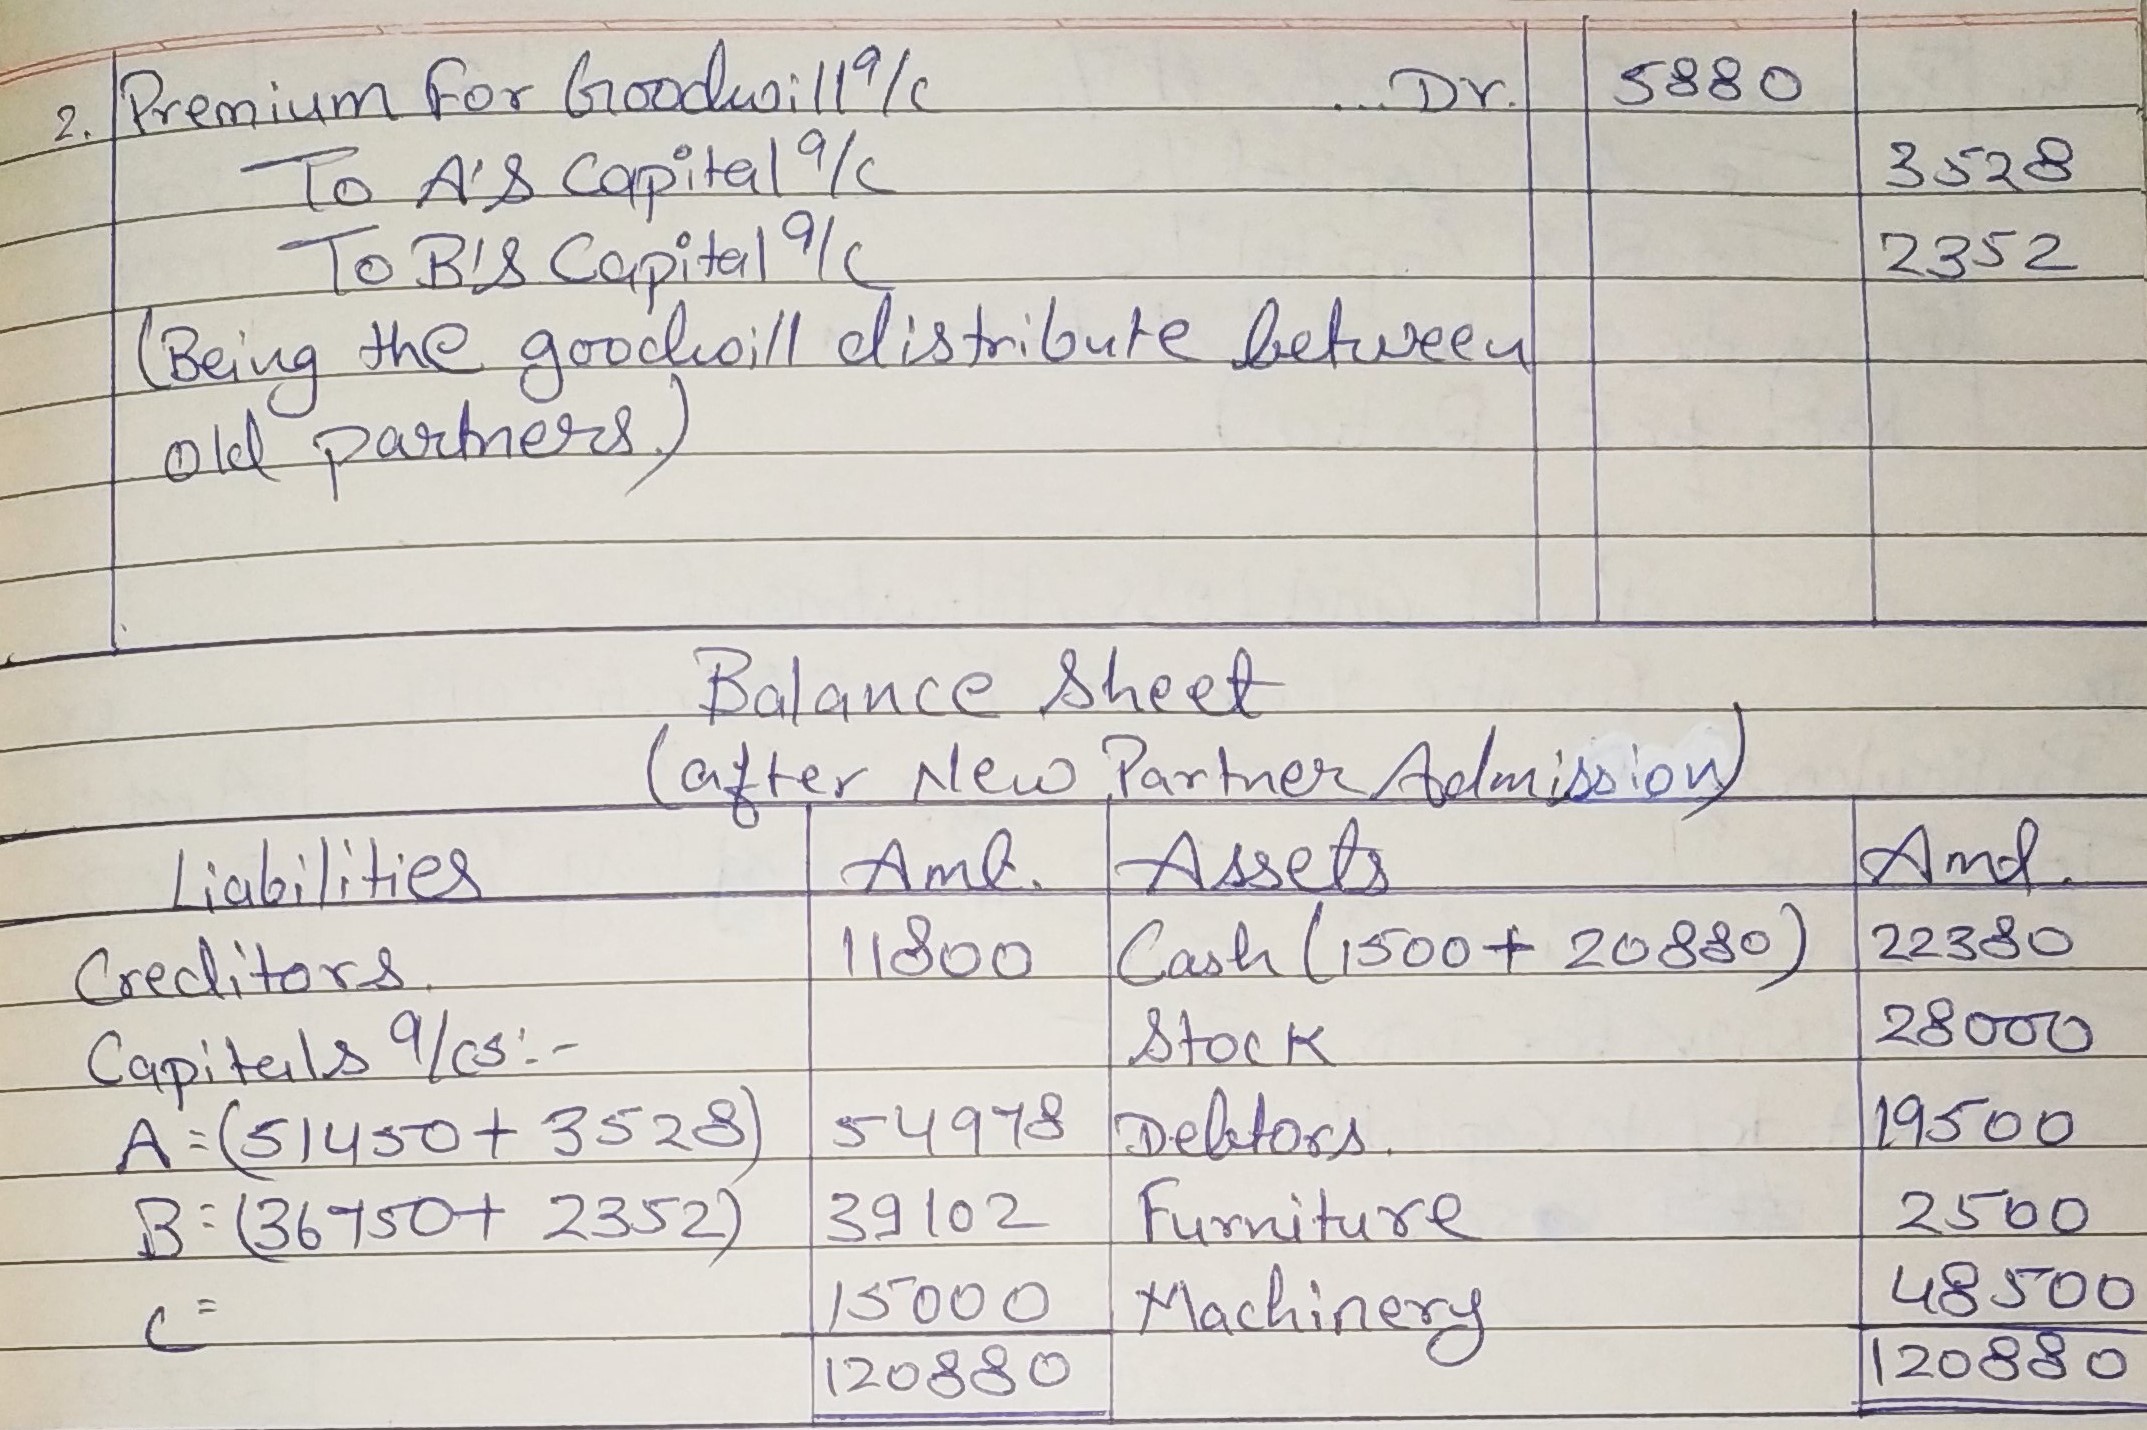 2. Premium For Goodwill a/c ...Dr. 5880
To A's Capital a/c 3528
To B's Capital a/c 2352
(Being the goodwill distribute between
old partners.)
Balance Sheet
(after New Partner Admission)
Liabilities Amt. Assets Amd.
Creditors. 11800 Cash (1500 + 20880) 22380
Capitals a/cs:- Stock 28000
A = (51450 + 3528) 54978 Debtors. 19500
B = (36750 + 2352) 39102 Furniture 2500
C = 15000 Machinery 48500
120880 120880